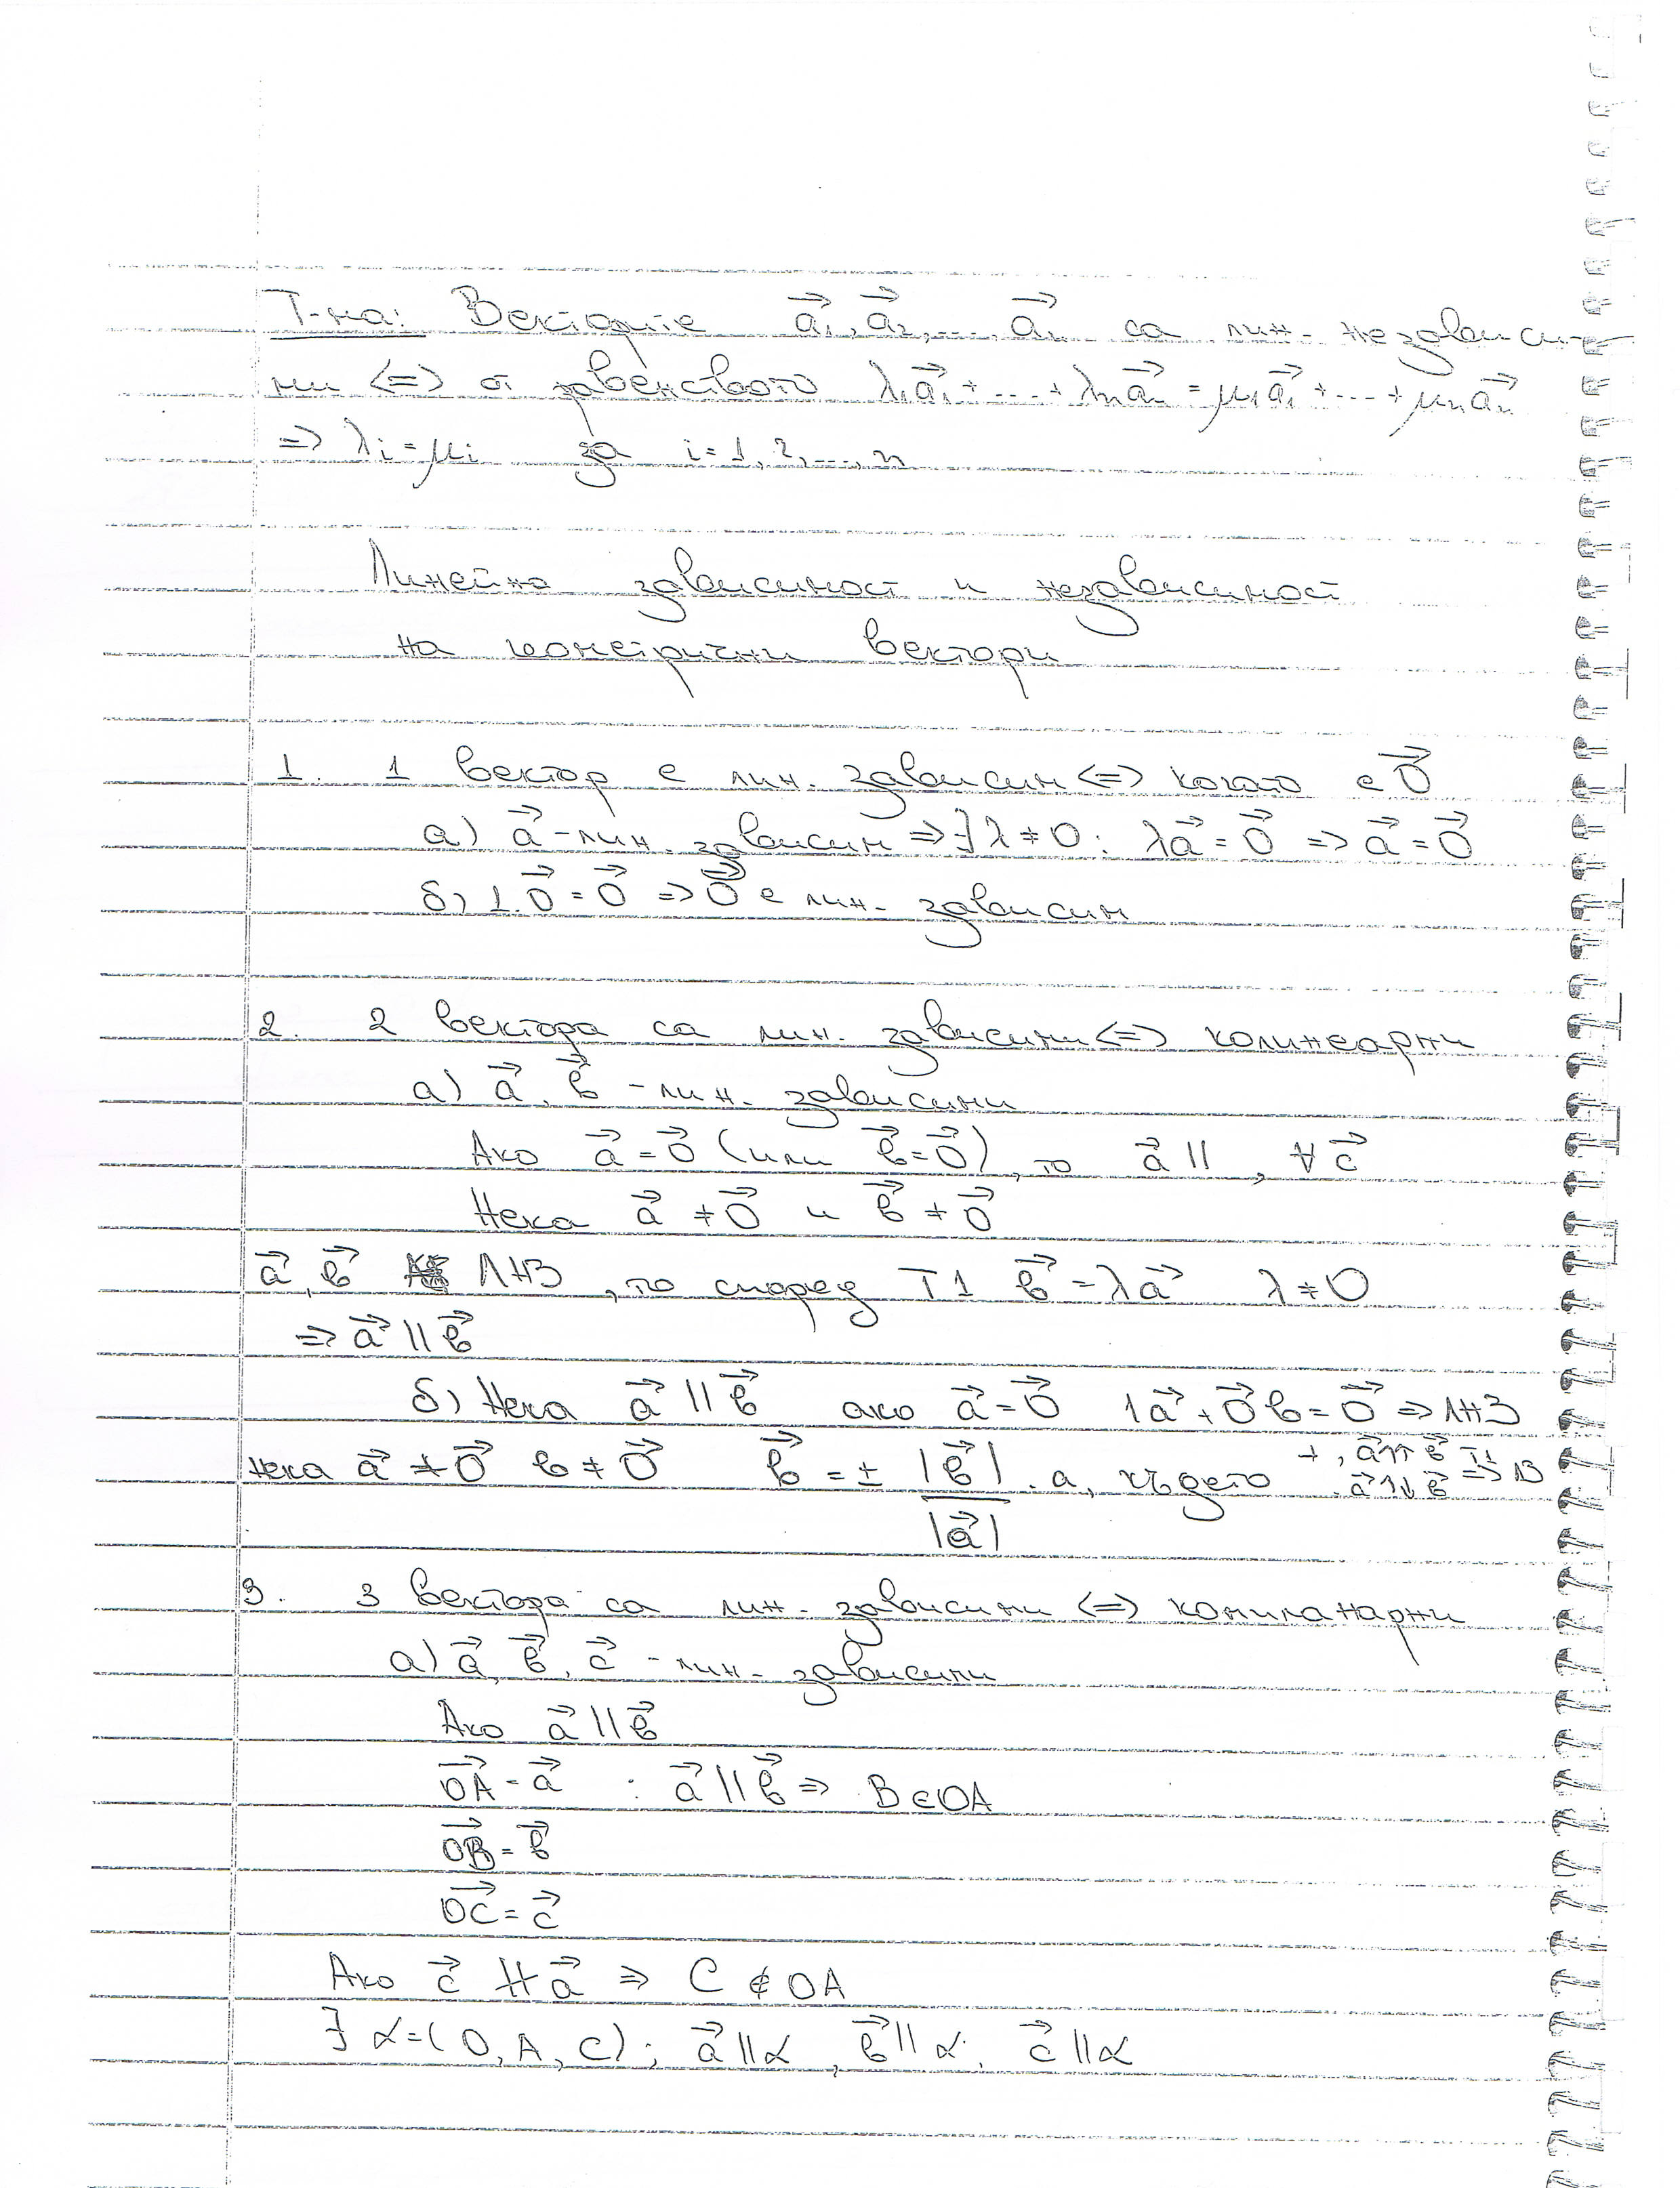 Т-ма: Векторите a⃗₁, a⃗₂, ... a⃗ₙ са лин. независи-
ми <=> от равенството λ₁a⃗₁ + ... + λₙa⃗ₙ = μ₁a⃗₁ + ... + μₙa⃗ₙ
=> λi = μi за i = 1, 2, ..., n
Линейна зависимост и независимост
на геометрични вектори
1. 1 вектор е лин. зависим <=> когато е 0⃗
а) a⃗ - лин. зависим => ∃ λ ≠ 0 : λa⃗ = 0⃗ => a⃗ = 0⃗
б) 1.0⃗ = 0⃗ => 0⃗ е лин. зависим
2. 2 вектора са лин. зависими <=> колинеарни
а) a⃗, b⃗ - лин. зависими
Ако a⃗ = 0⃗ (или b⃗ = 0⃗), то a⃗ || , ∀ c⃗
Нека a⃗ ≠ 0⃗ и b⃗ ≠ 0⃗
a⃗, b⃗ ЛНЗ, то според Т1 b⃗ = λa⃗ λ ≠ 0
=> a⃗ || b⃗
б) Нека a⃗ || b⃗ ако a⃗ = 0⃗ 1a⃗ + 0⃗b = 0⃗ => ЛНЗ
нека a⃗ ≠ 0⃗ b ≠ 0⃗ b⃗ = ± |b⃗| / |a⃗| . a, където +, a⃗ ↑↑ b⃗ T1
a⃗ ↑↓ b⃗ => ЛЗ
3. 3 вектора са лин. зависими <=> компланарни
а) a⃗, b⃗, c⃗ - лин. зависими
Ако a⃗ || b⃗
OA⃗ = a⃗ : a⃗ || b⃗ => B ∈ OA
OB⃗ = b⃗
OC⃗ = c⃗
Ако c⃗ ∦ a⃗ => C ∉ OA
∃ α = (O, A, C) ; a⃗ || α, b⃗ || α, c⃗ || α